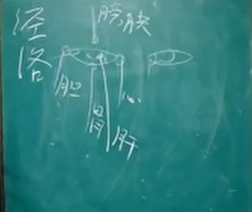 经络
膀胱
胆
胃
肝
心